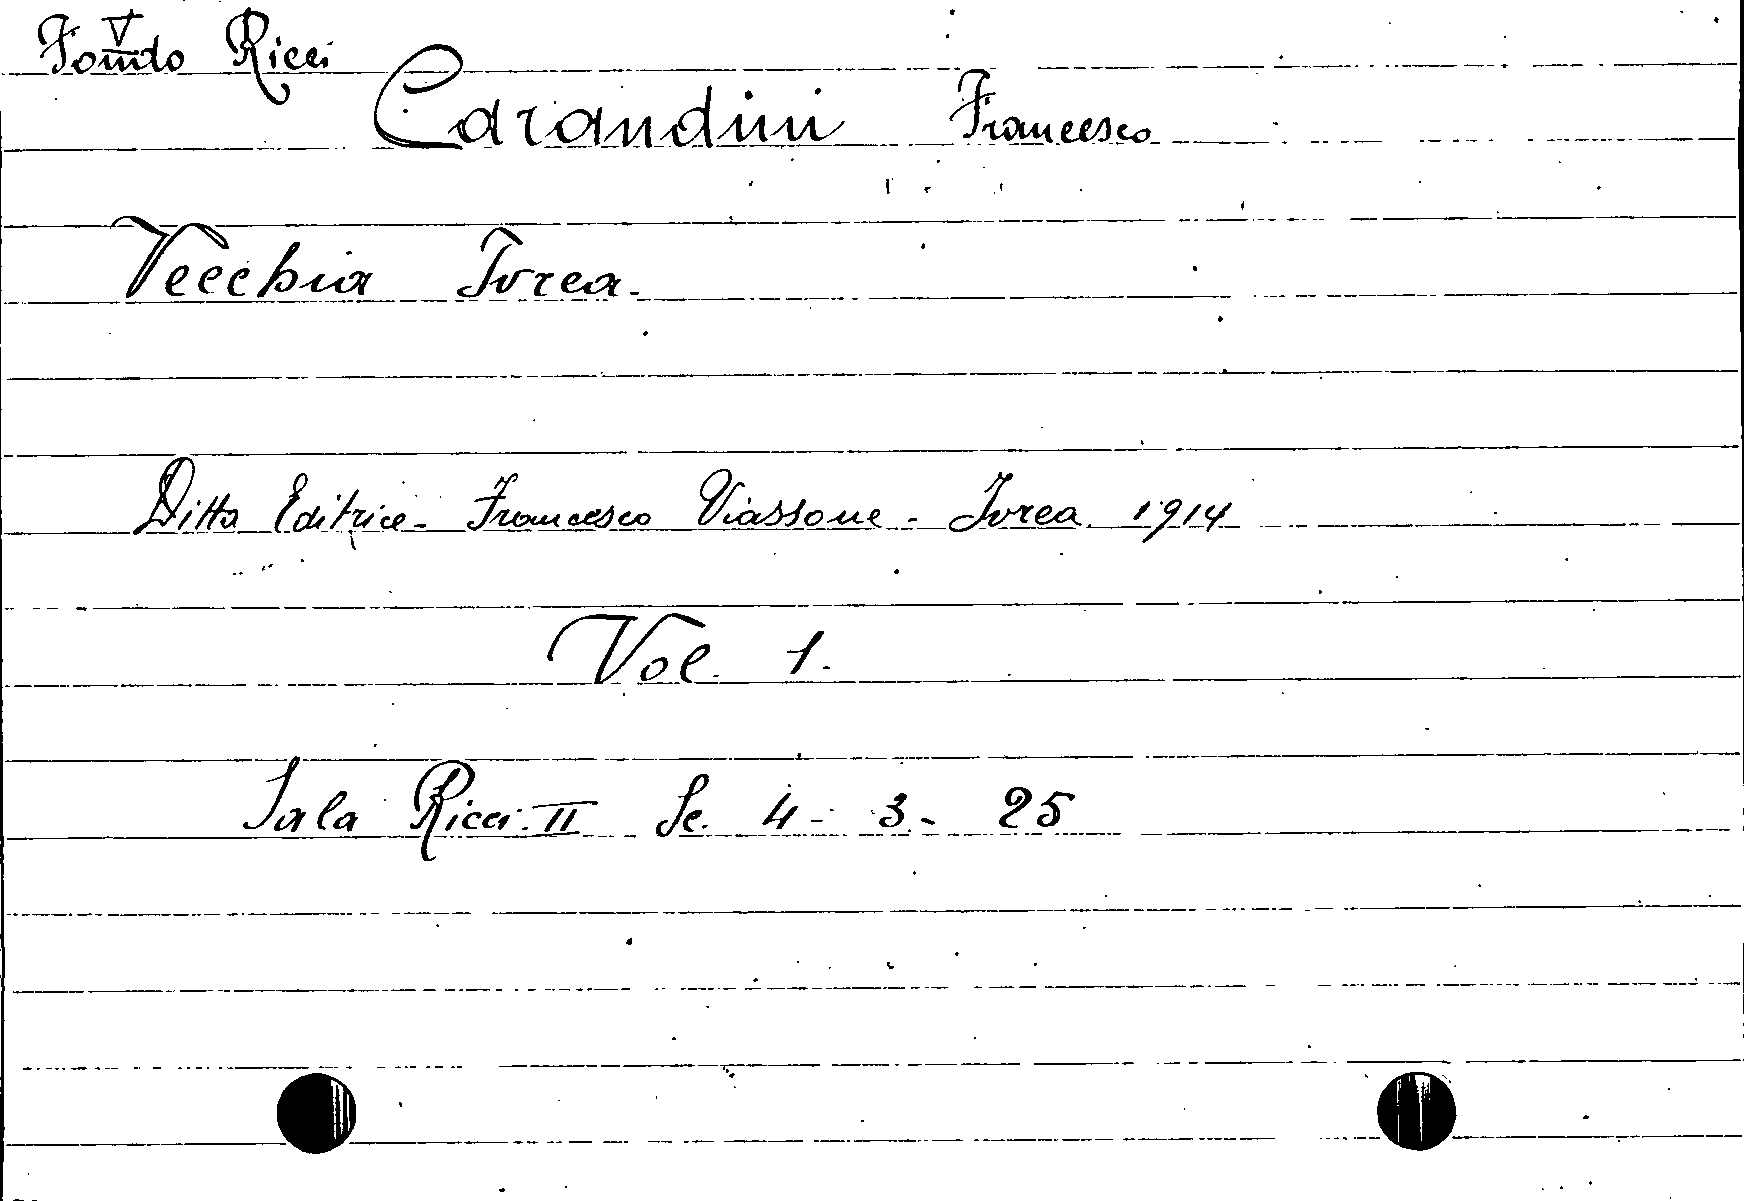 Fondo Ricci
Carandini Francesco
Vecchia Ivrea.
Ditta Editrice - Francesco Viassone - Ivrea 1914
Vol. 1.
Sala Ricci II Sc. 4 - 3 - 25